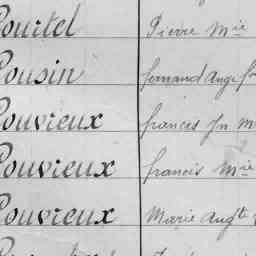 Pourtel Pierre Mie
Pousin fernand Ange
Pouvreux frances Jn M
Pouvreux francis Mie
Pouvreux Marie Augte